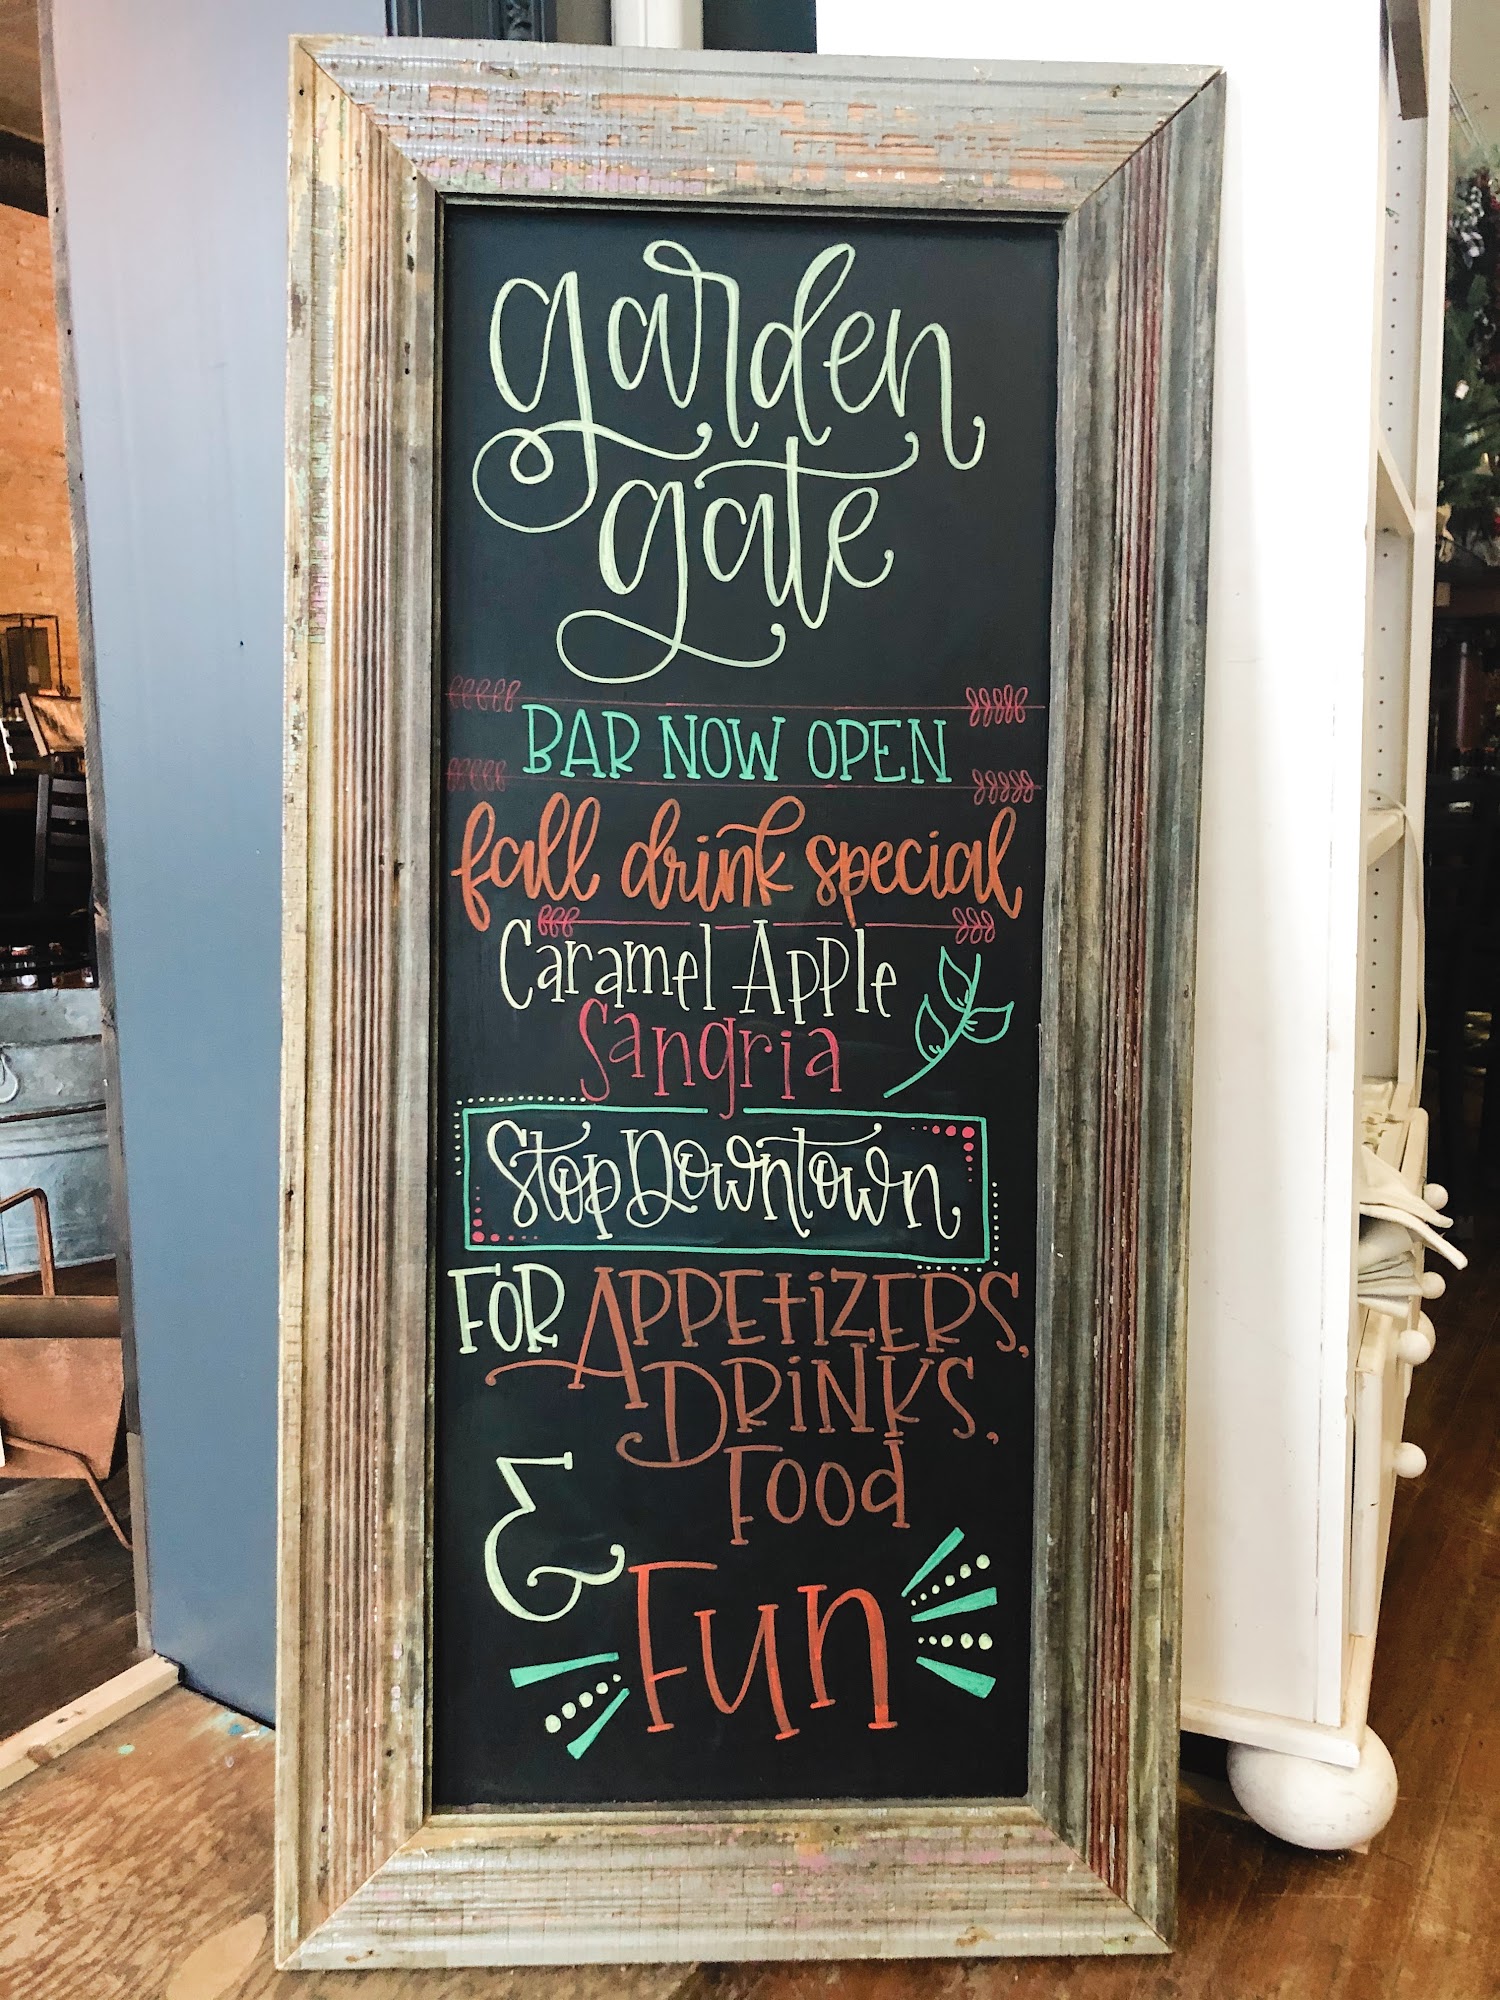 garden
gate
BAR NOW OPEN
fall drink special
Caramel Apple
Sangria
Stop Downtown
FOR APPETIZERS,
DRINKS,
Food
&
Fun